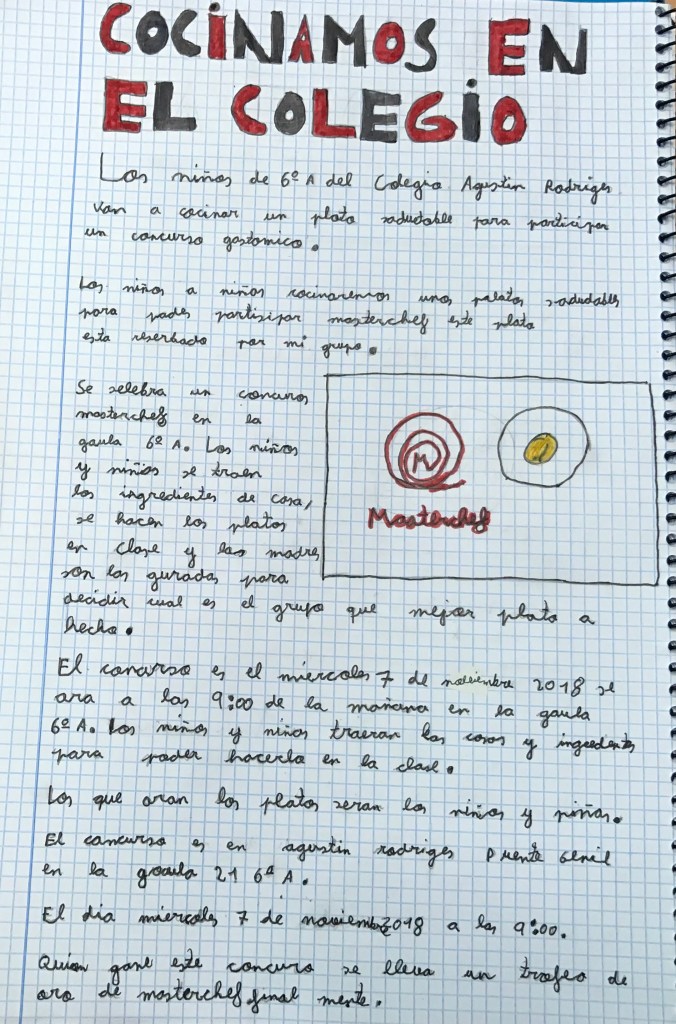 COCINAMOS EN
EL COLEGIO
Los niños de 6º A del Colegio Agustin Rodriges
van a cocinar un plato saludable para participar
un concurso gastomico.
Los niños a niños cocinaremos unos palatos saludables
para poder partisipar masterchef este plato
esta reserbado por mi grupo.
Se selebra un concuros
masterchef en la
gaula 6º A. Los niños
y niñios se traen
los ingredientes de casa,
se hacen los platos
en clase y las madres
son los gurados para
decidir cual es el grupo que mejor plato a
hecho.
M
Masterchef
El concurso es el miercoles 7 de noviembre 2018 se
ara a las 9:00 de la mañana en la gaula
6º A. Los niños y niños traeran las cosas y ingredents
para poder hacerla en la clase.
Los que aran los platos seran los niños y niñas.
El concurso es en agustin rodriges Puente Genil
en la gaula 21 6ª A.
El dia miercoles 7 de noviembre 2018 a las 9:00.
Quien gane este concuro se lleva un trofeo de
oro de masterchef final mente.